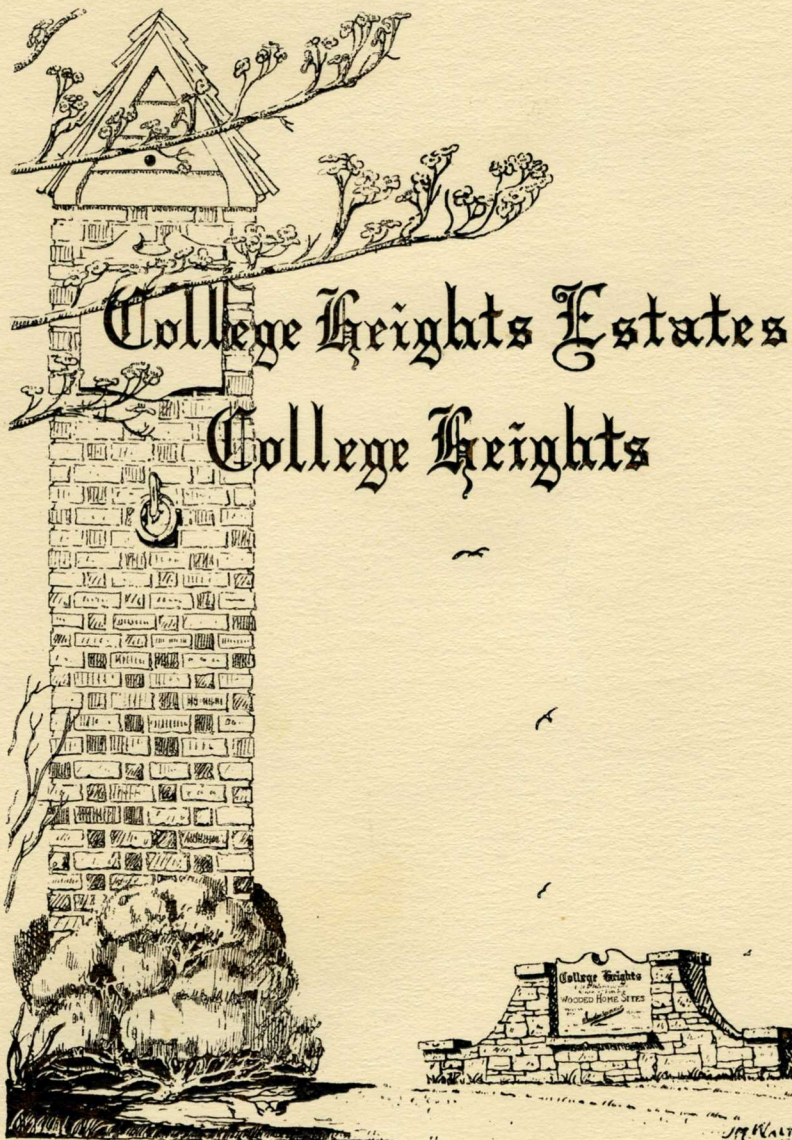 College Heights Estates
College Heights
College Heights
WOODED HOME SITES